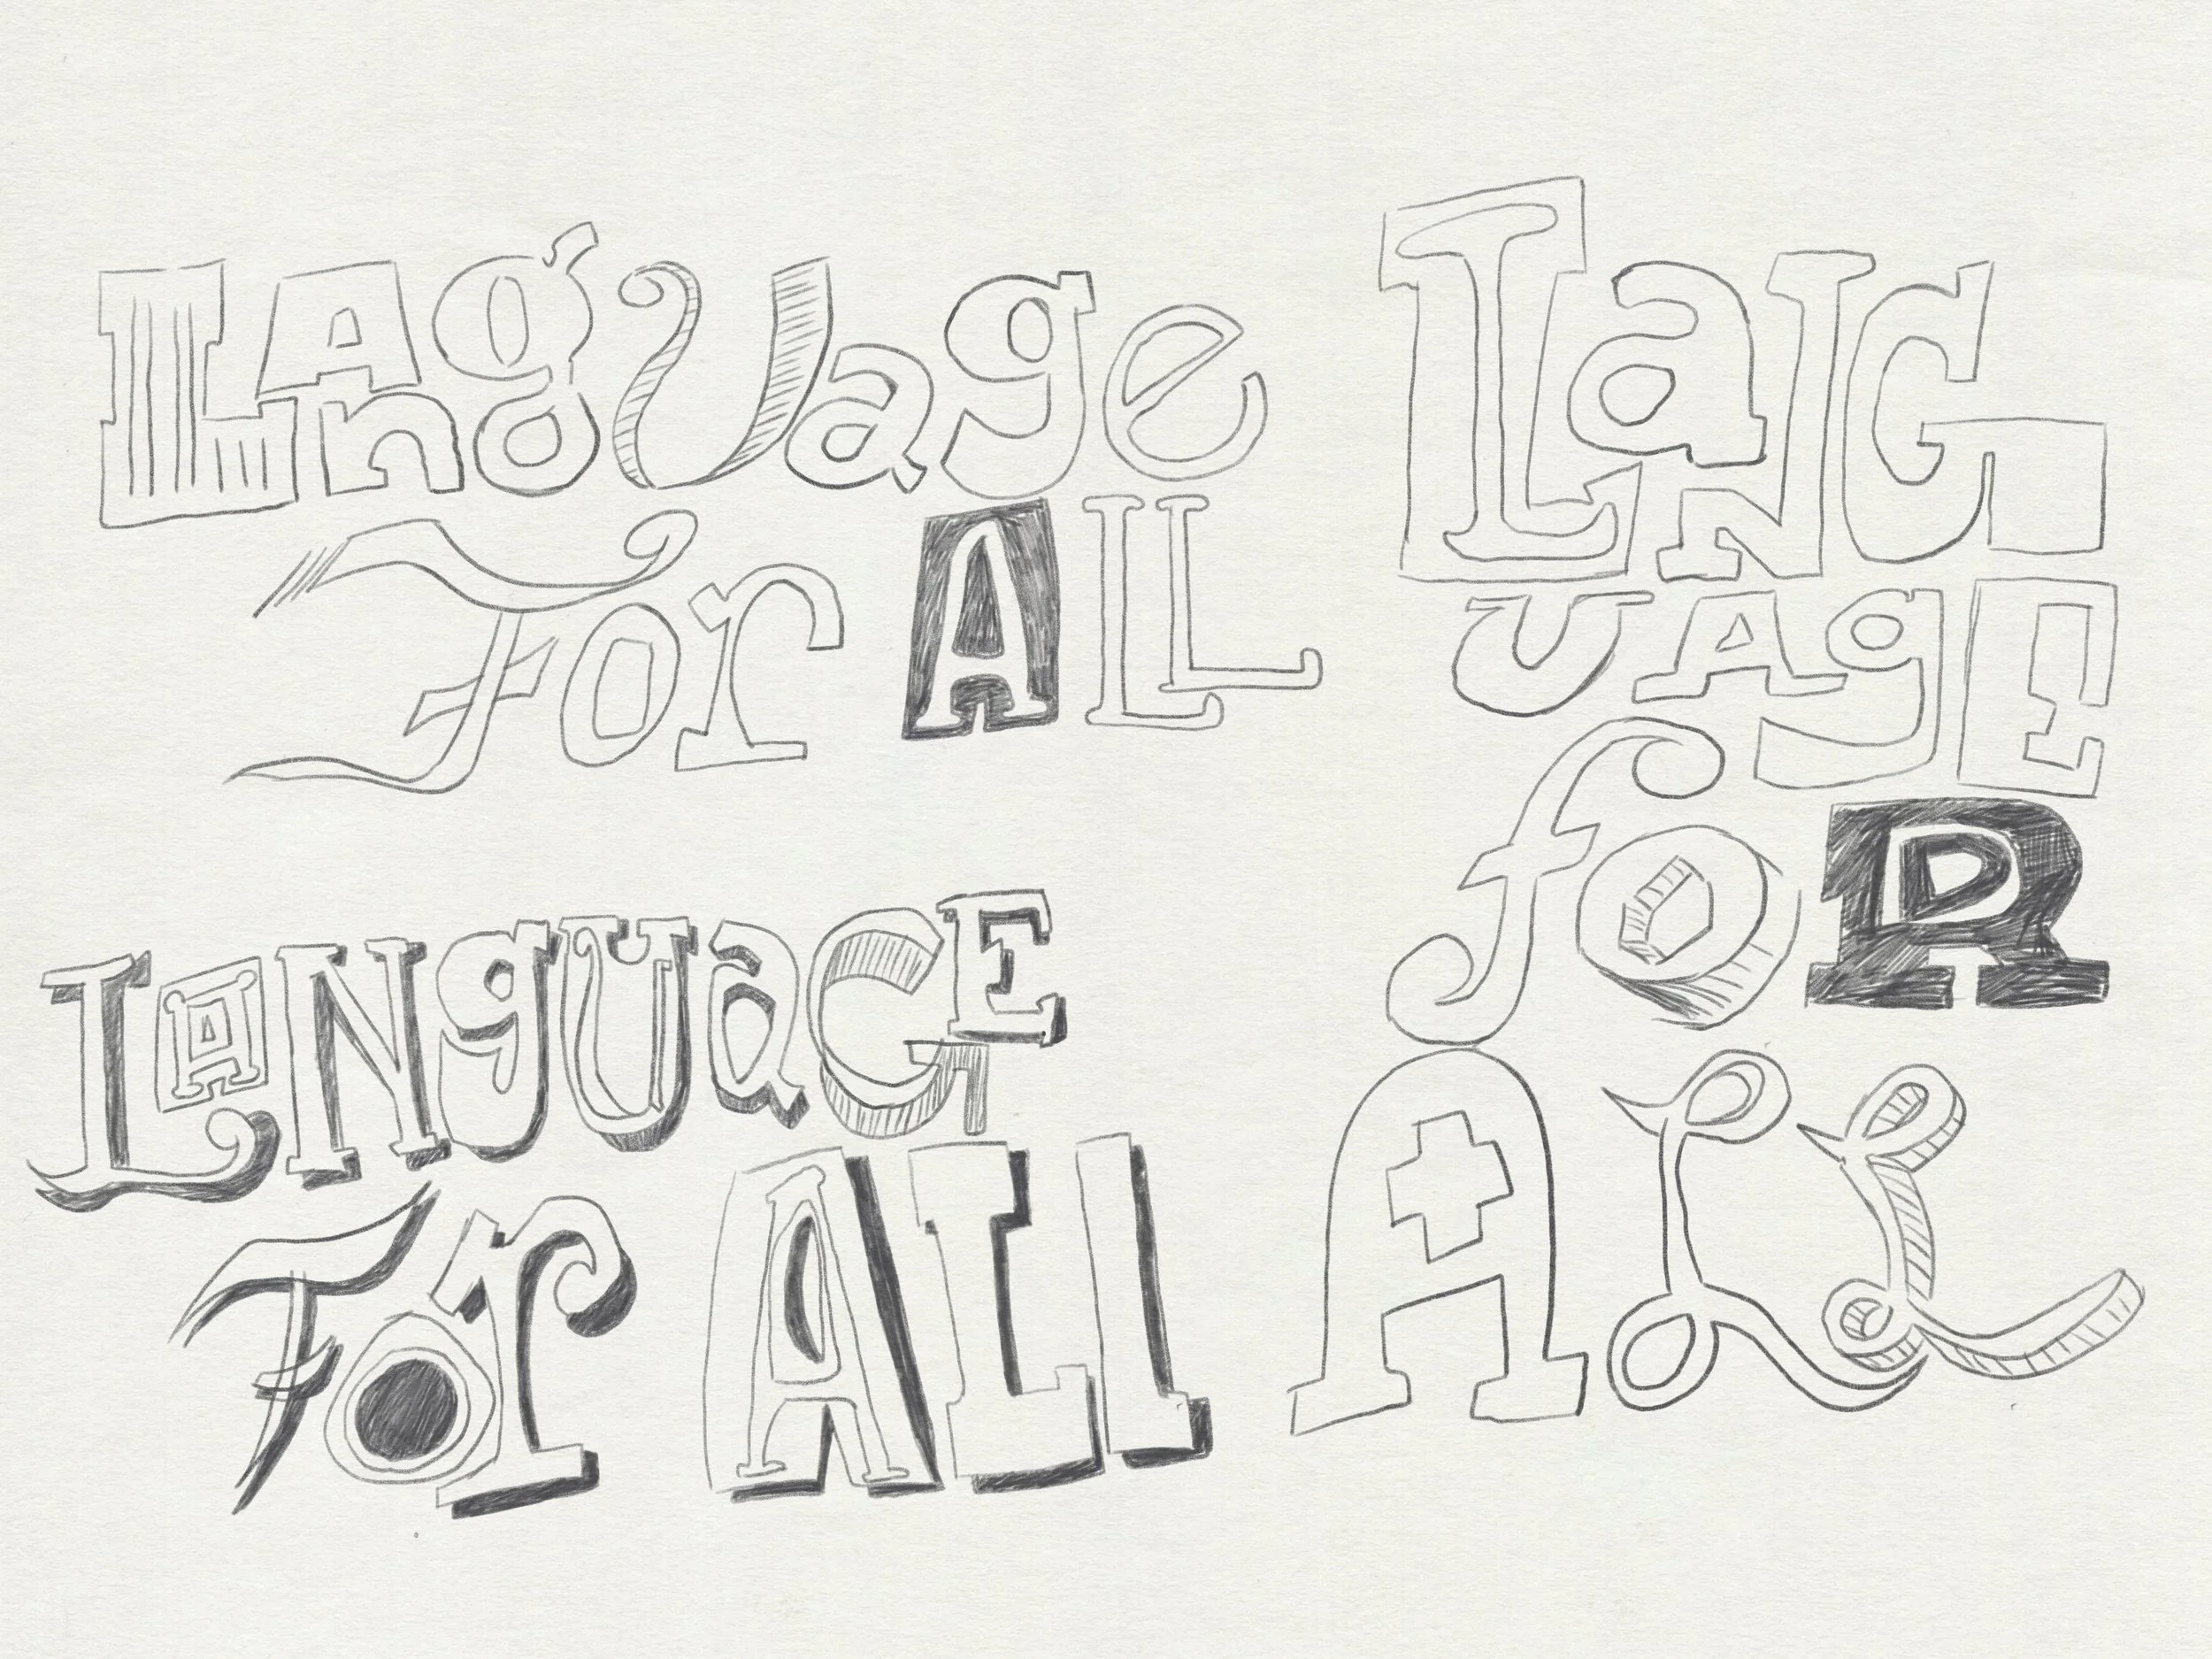 LAnguage
For ALL
LANguaGE
For ALL
LaNG
UAgE
foR
ALL